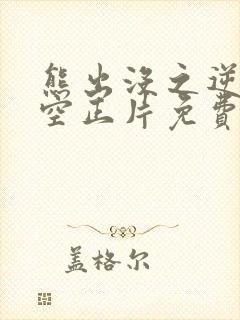 熊出没之逆
空正片免费
盖格尔